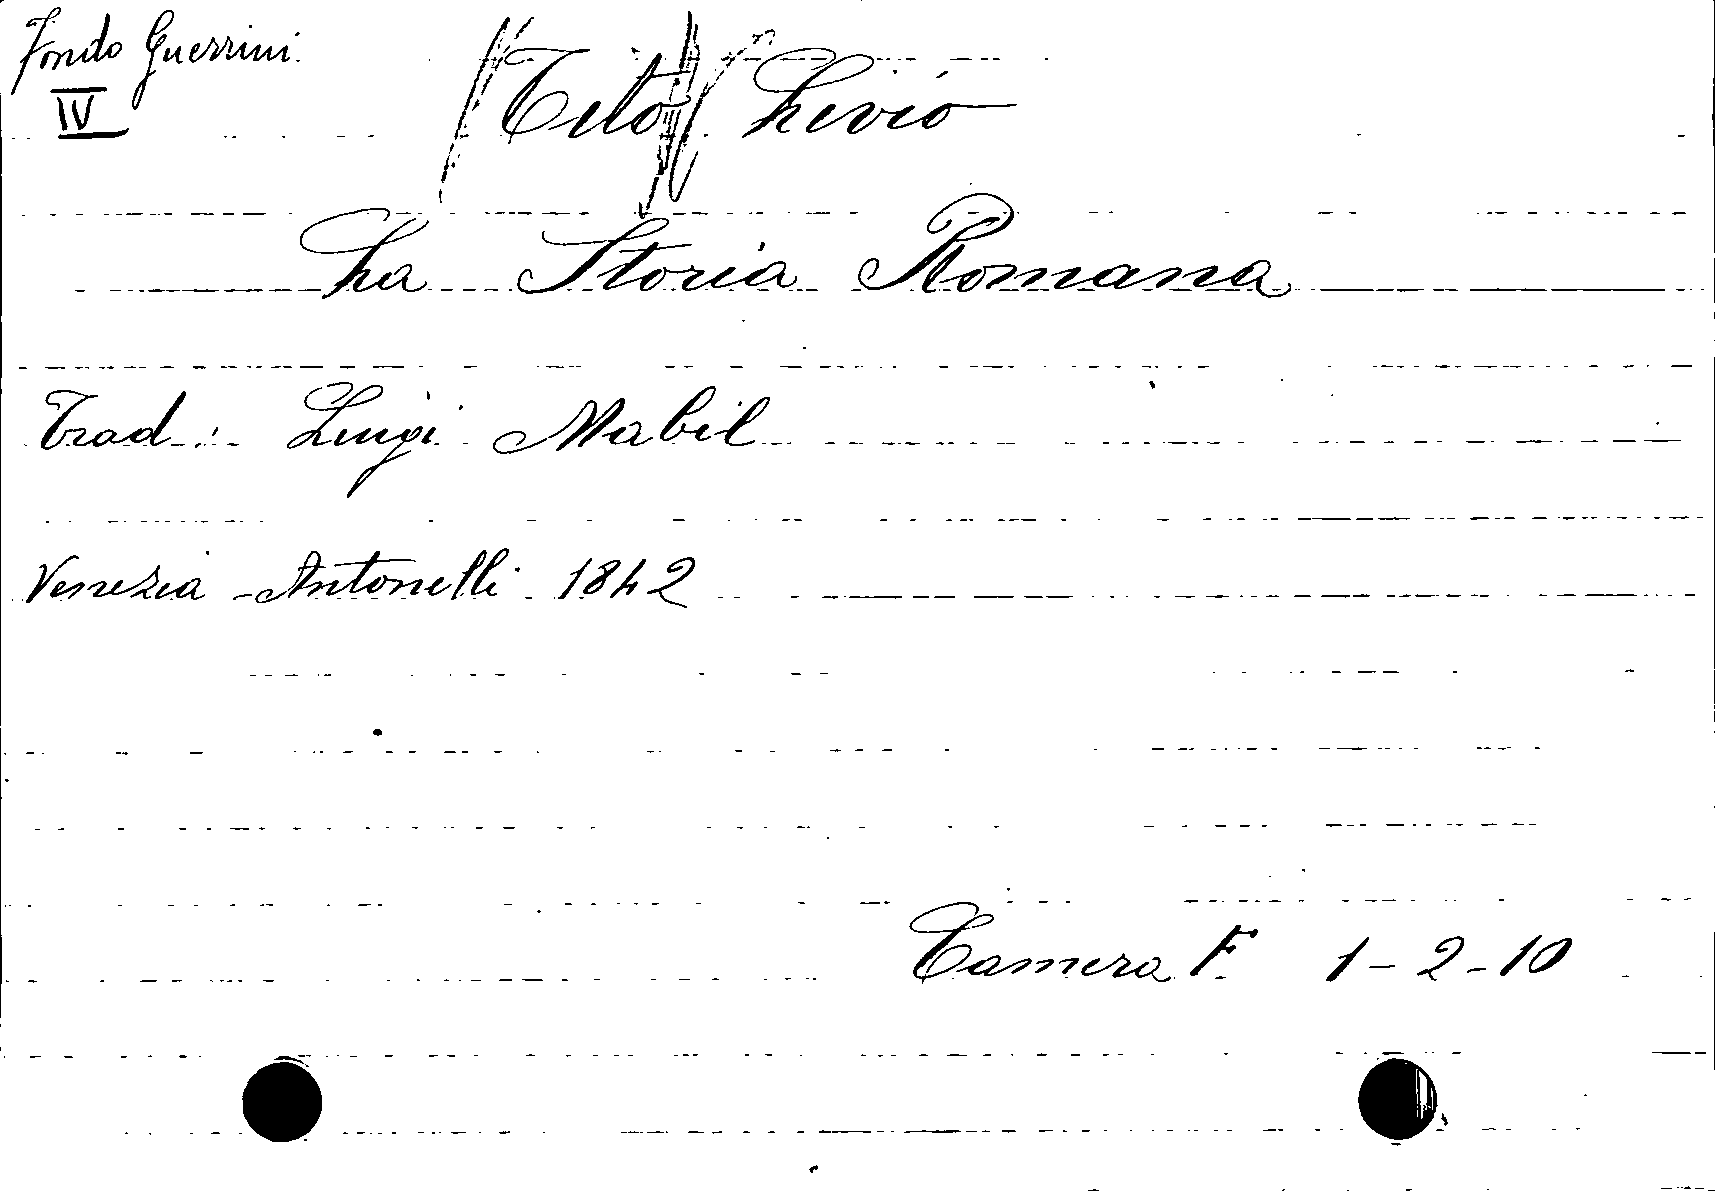 Fondo Guerrini
IV
Tito Livio
La Storia Romana
Trad: Luigi Mabil
Venezia - Antonelli 1842
Camera F. 1-2-10